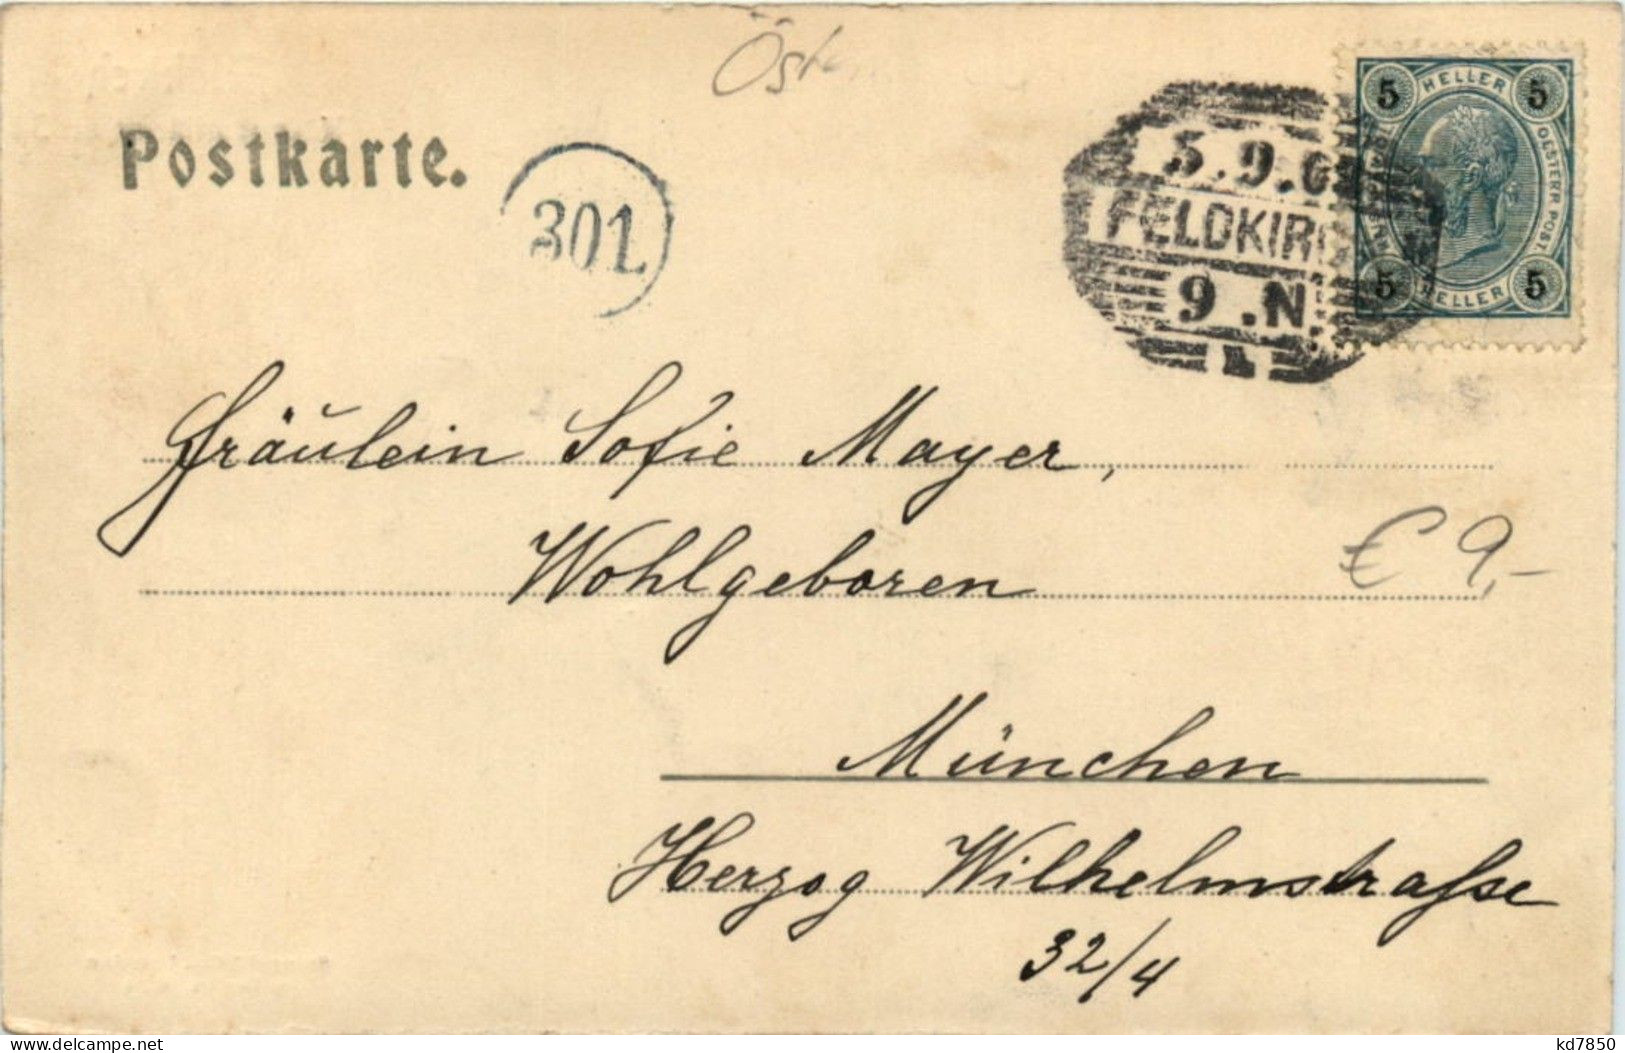 Postkarte.
301
5.9.0
FELDKIRCH
9.N.
1
5 HELLER 5
OESTERR. POST.
5 HELLER 5
Fräulein Sofie Mayer,
Wohlgeboren
€ 9,-
München
Herzog Wilhelmstrasse
32/4
kd7850